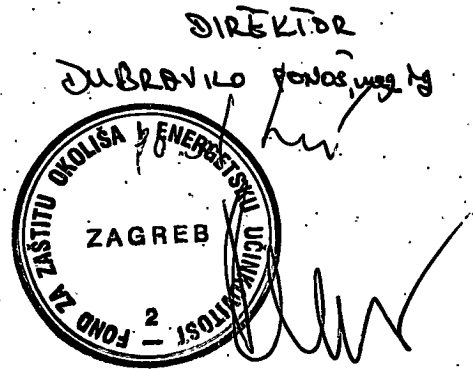 DIREKTOR
DUBRAVKO PONOŠ, mag. ing
FOND ZA ZAŠTITU OKOLIŠA I ENERGETSKU UČINKOVITOST
ZAGREB
2